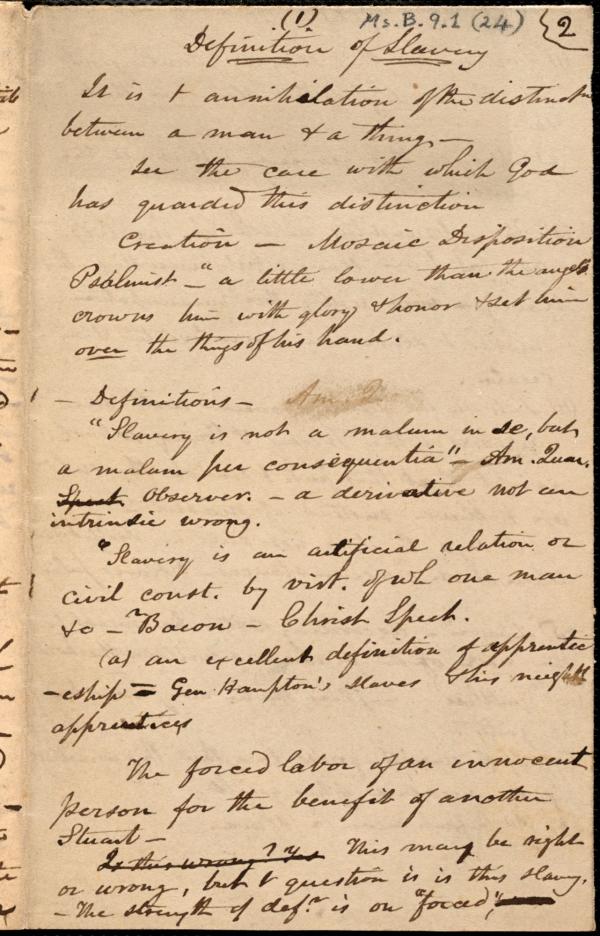 (1) Ms.B.9.1 (24) 2
Definition of Slavery
It is t annihilation of the distinctn
between a man & a thing. —
See the care with which God
has guarded this distinction
Creation — Mosaic Disposition
Psalmist — "a little lower than the angels
crowns him with glory & honor & set him
over the things of his hand.
— Definitions — Am. Q
"Slavery is not a malum in se, but
a malum per consequentia" — Am. Quar.
Spect Observer. — a derivative not an
intrinsic wrong.
"Slavery is an artificial relation or
civil const. by virt. of wh one man
&c — " Bacon — Christ Spect.
(a) an excellent definition of apprentic
-eship — Gen Hampton's slaves & his neighb
apprentices
The forced labor of an innocent
person for the benefit of another
Stuart —
Is this wrong? Yes This may be right
or wrong, but t question is is this slavery.
— The strength of def.n is on "forced",